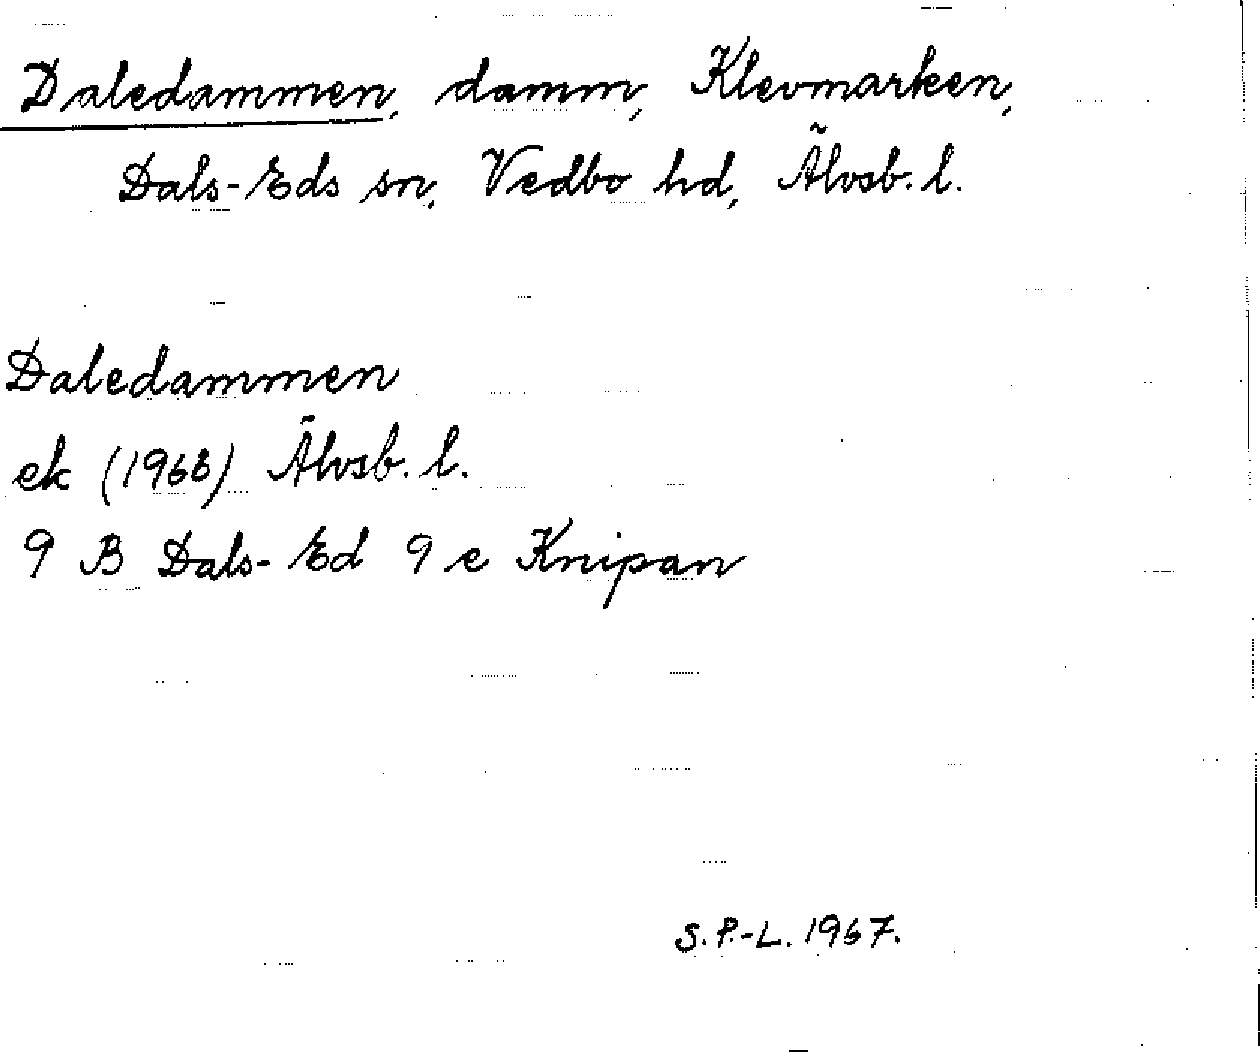 Daledammen, damm, Klevmarken,
Dals-Eds sn, Vedbo hd, Älvsb. l.
Daledammen
ek (1963) Älvsb. l.
9 B Dals-Ed 9 e Knipan
S. P.-L. 1967.